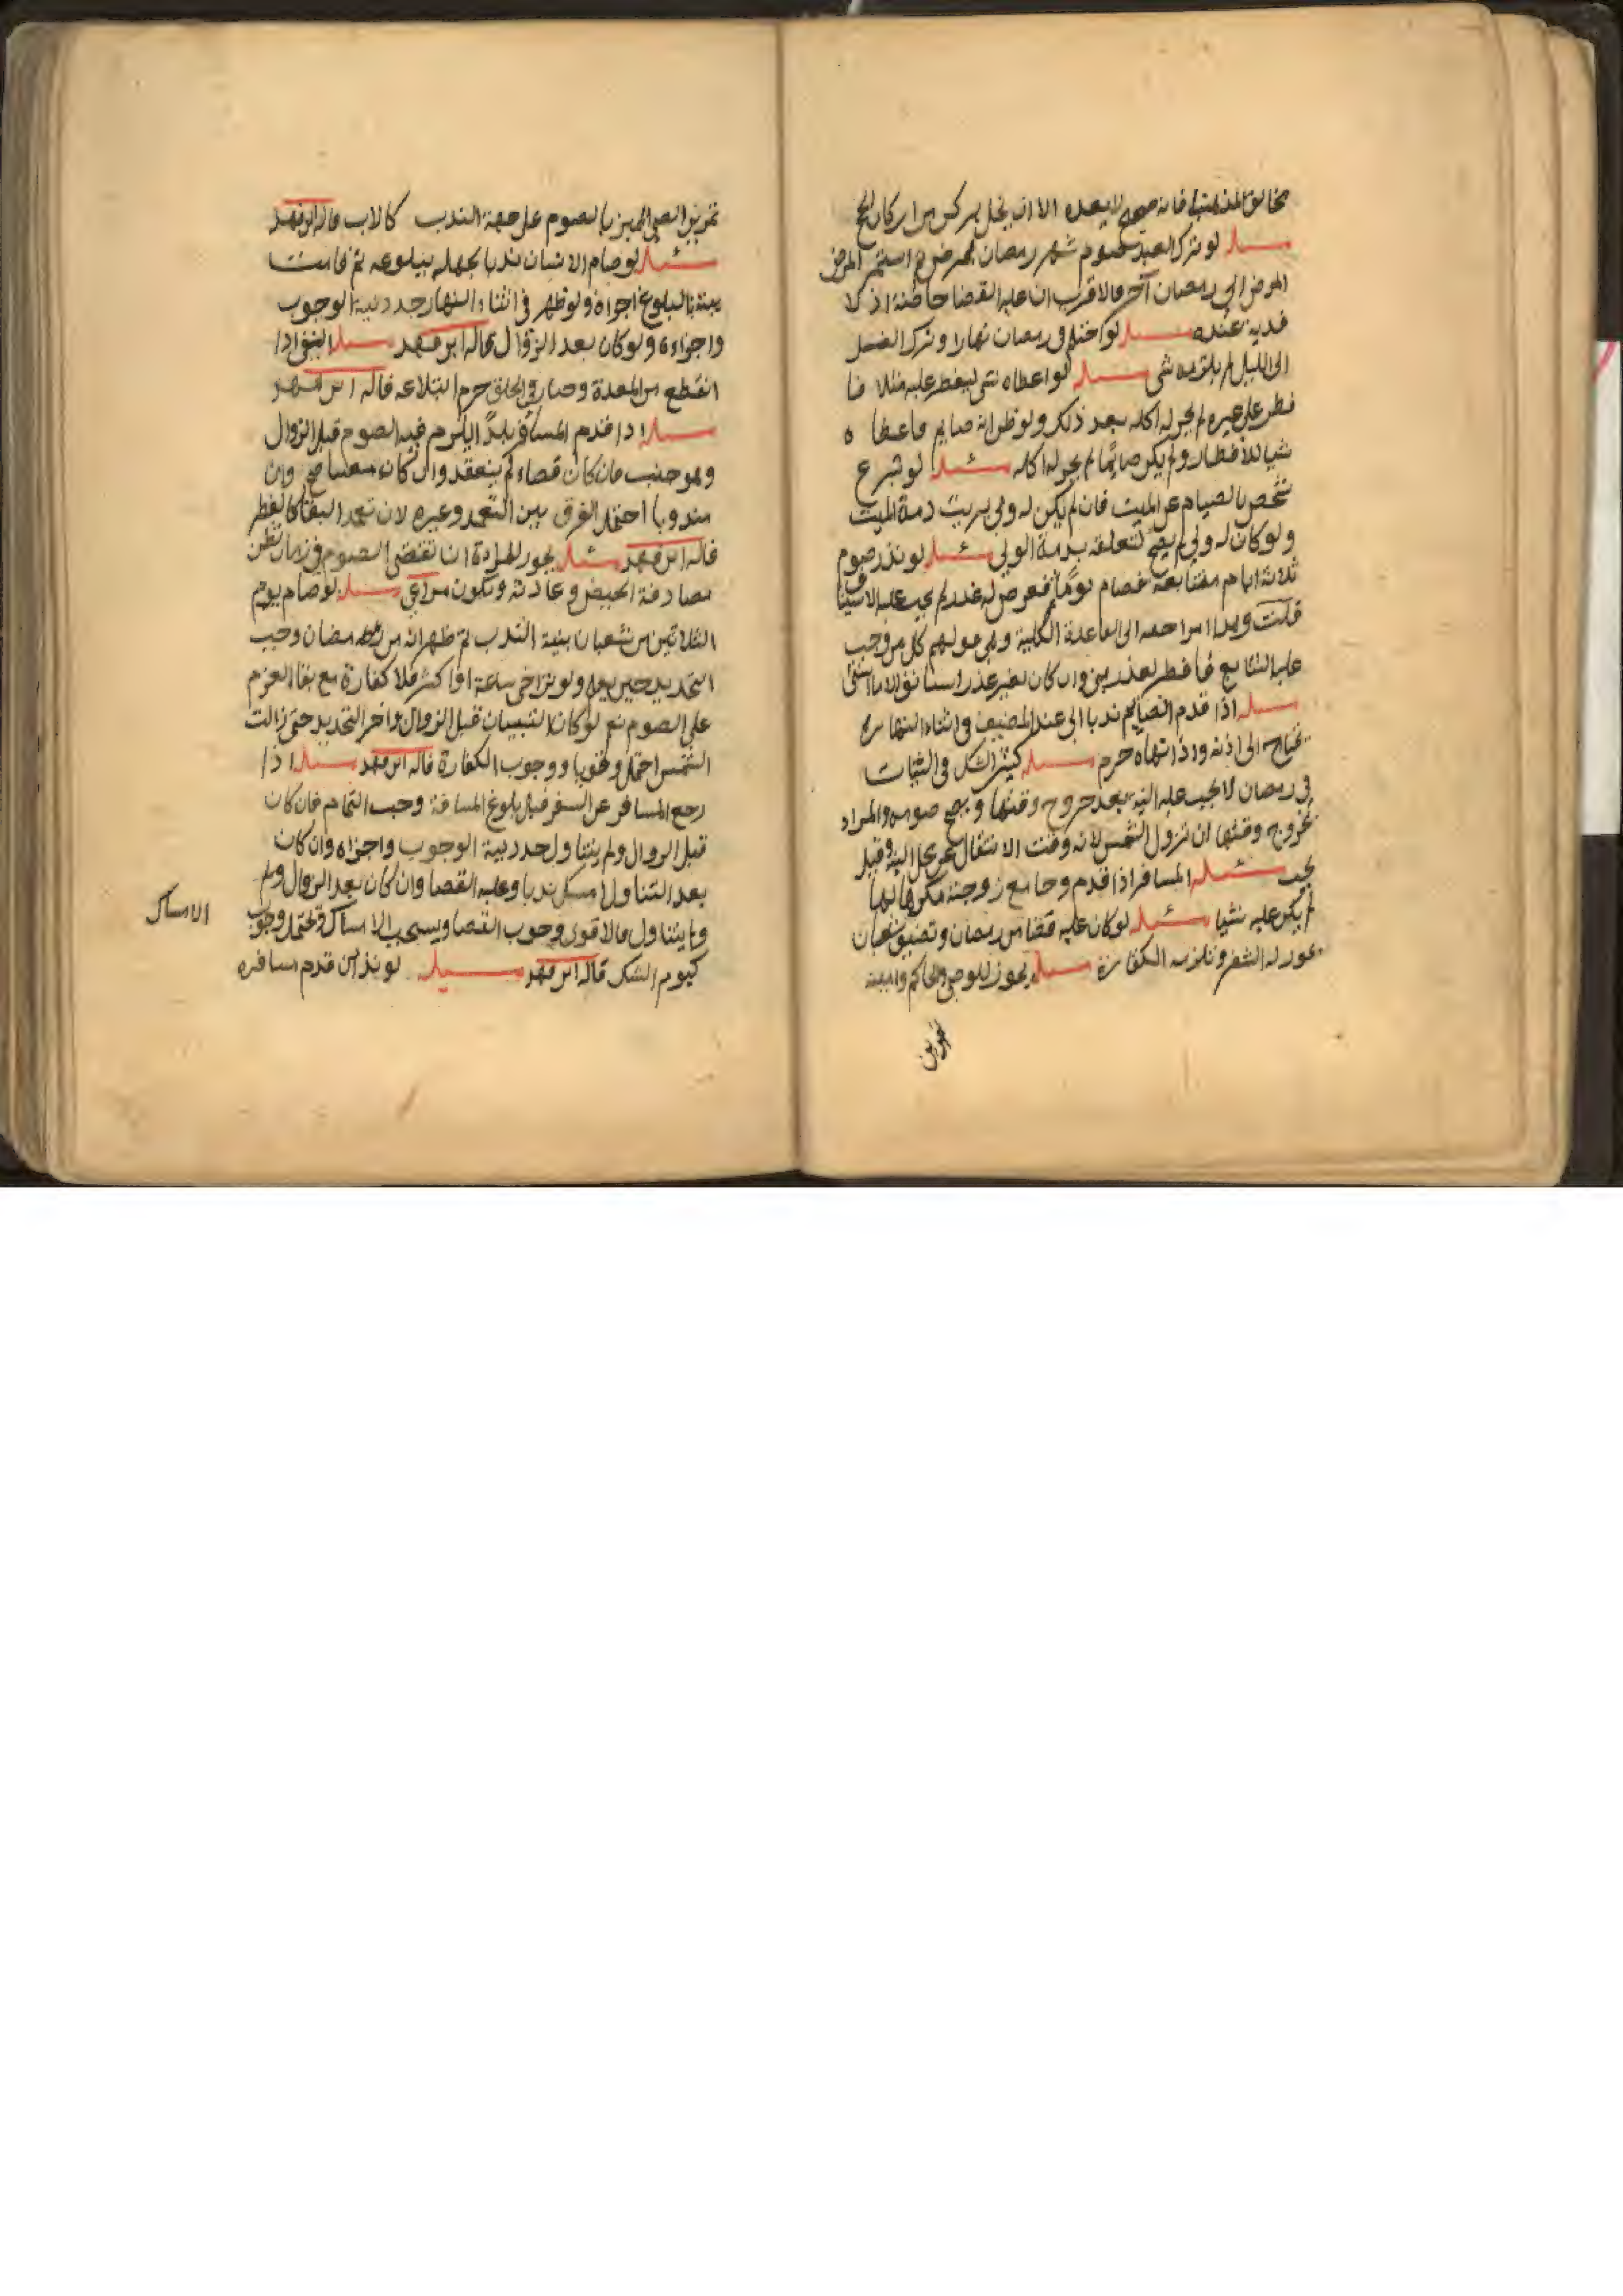 مخالف المذهب فانه صحيح لا يعده الا ان يخل بركن من اركان الحج
مسئله لو ترك العبد صوم شهر رمضان لمرض ثم استمر المرض
المرض الى رمضان آخر فالاقرب ان عليه القضا خاصة اذ لا
فدية عنده مسئله لو احتلم في رمضان نهارا وترك الغسل
الى الليل لم يلزمه شى مسئله لو اعطاه شى ليفطر عليه مثلا فا
فطر على غيره لم يجز له اكله بعد ذلك ولو ظن انه صايم فاعطاه
شيا للافطار ولم يكن صائما لم يجز له اكله مسئله لو تبرع
شخص بالصيام عن الميت فان لم يكن له ولى بريت ذمة الميت
ولو كان له ولى لم يصح لتعلقه بذمة الولى مسئله لو نذر صوم
ثلاثة ايام متتابعة فصام يوما فعرض له عذر لم يجب عليه الاستيناف
قلت وهذا راجعه الى القاعدة الكلية وهى قولهم كل من وجب
عليه التتابع فافطر لعذر بنى وان كان لغير عذر استانف الا ما استثنى
مسئله اذا قدم الصايم ندبا الى عند المضيف في اثناء النهار
يحتاج الى اذنه واذا نهاه حرم مسئله كثير الشك في النيات
في رمضان لا يجب عليه النية بعد خروج وقتها ويصح صومه والمراد
بخروج وقتها ان تزول الشمس لانه وقت الانتقال عن محل النية وقيل
يجب مسئله المسافر اذا قدم وجامع زوجته مكرها لها
لم يكن عليه شيا مسئله لو كان عليه قضا من رمضان وتضيق شعبان
يجوز له السفر وتلزمه الكفارة مسئله يجوز للوصى والحاكم وامينه
تمرين
تمرين الصبى المميز بالصوم على جهة الندب كالاب قاله ابن فهد
مسئله لو صام الانسان ندبا لجهله ببلوغه ثم قامت
بينة بالبلوغ اجزاه ولو ظهر في اثناء النهار جدد نية الوجوب
واجزاه ولو كان بعد الزوال قاله ابن فهد مسئله القى اذا
انقطع من المعدة وصار في الحلق حرم ابتلاعه قاله ابن فهد
مسئله اذا قدم المسافر بلدا يلزم فيه الصوم قبل الزوال
وهو جنب فان كان قضاء لم ينعقد وان كان معينا صح وان
مندوبا احتمل الفرق بين التعمد وغيره لان تعمد البقا كالفطر
قاله ابن فهد مسئله يجوز للمراة ان تقضى الصوم في زمان تظن
مصادفة الحيض وعادته ويكون مراعى مسئله لو صام يوم
الثلاثين من شعبان بنية الندب ثم ظهر انه من رمضان وجب
التجديد حين يعلم ولو تراخى ساعة او اكثر فلا كفارة مع بقا العزم
على الصوم نعم لو كان التبيان قبل الزوال واخر التجديد حتى زالت
الشمس احتمل قويا ووجوب الكفارة قاله ابن فهد مسئله اذا
رجع المسافر عن السفر قبل بلوغ المسافة وجب التمام فان كان
قبل الزوال ولم يتناول جدد نية الوجوب واجزاه وان كان
بعد التناول امسك ندبا وعليه القضا وان كان بعد الزوال ولم
يتناول فالاقوى وجوب القضا ويستحب الامساك ويحتمل وجوب
الامساك
كيوم الشك قاله ابن فهد مسئله لو نذر ان قدم مسافره